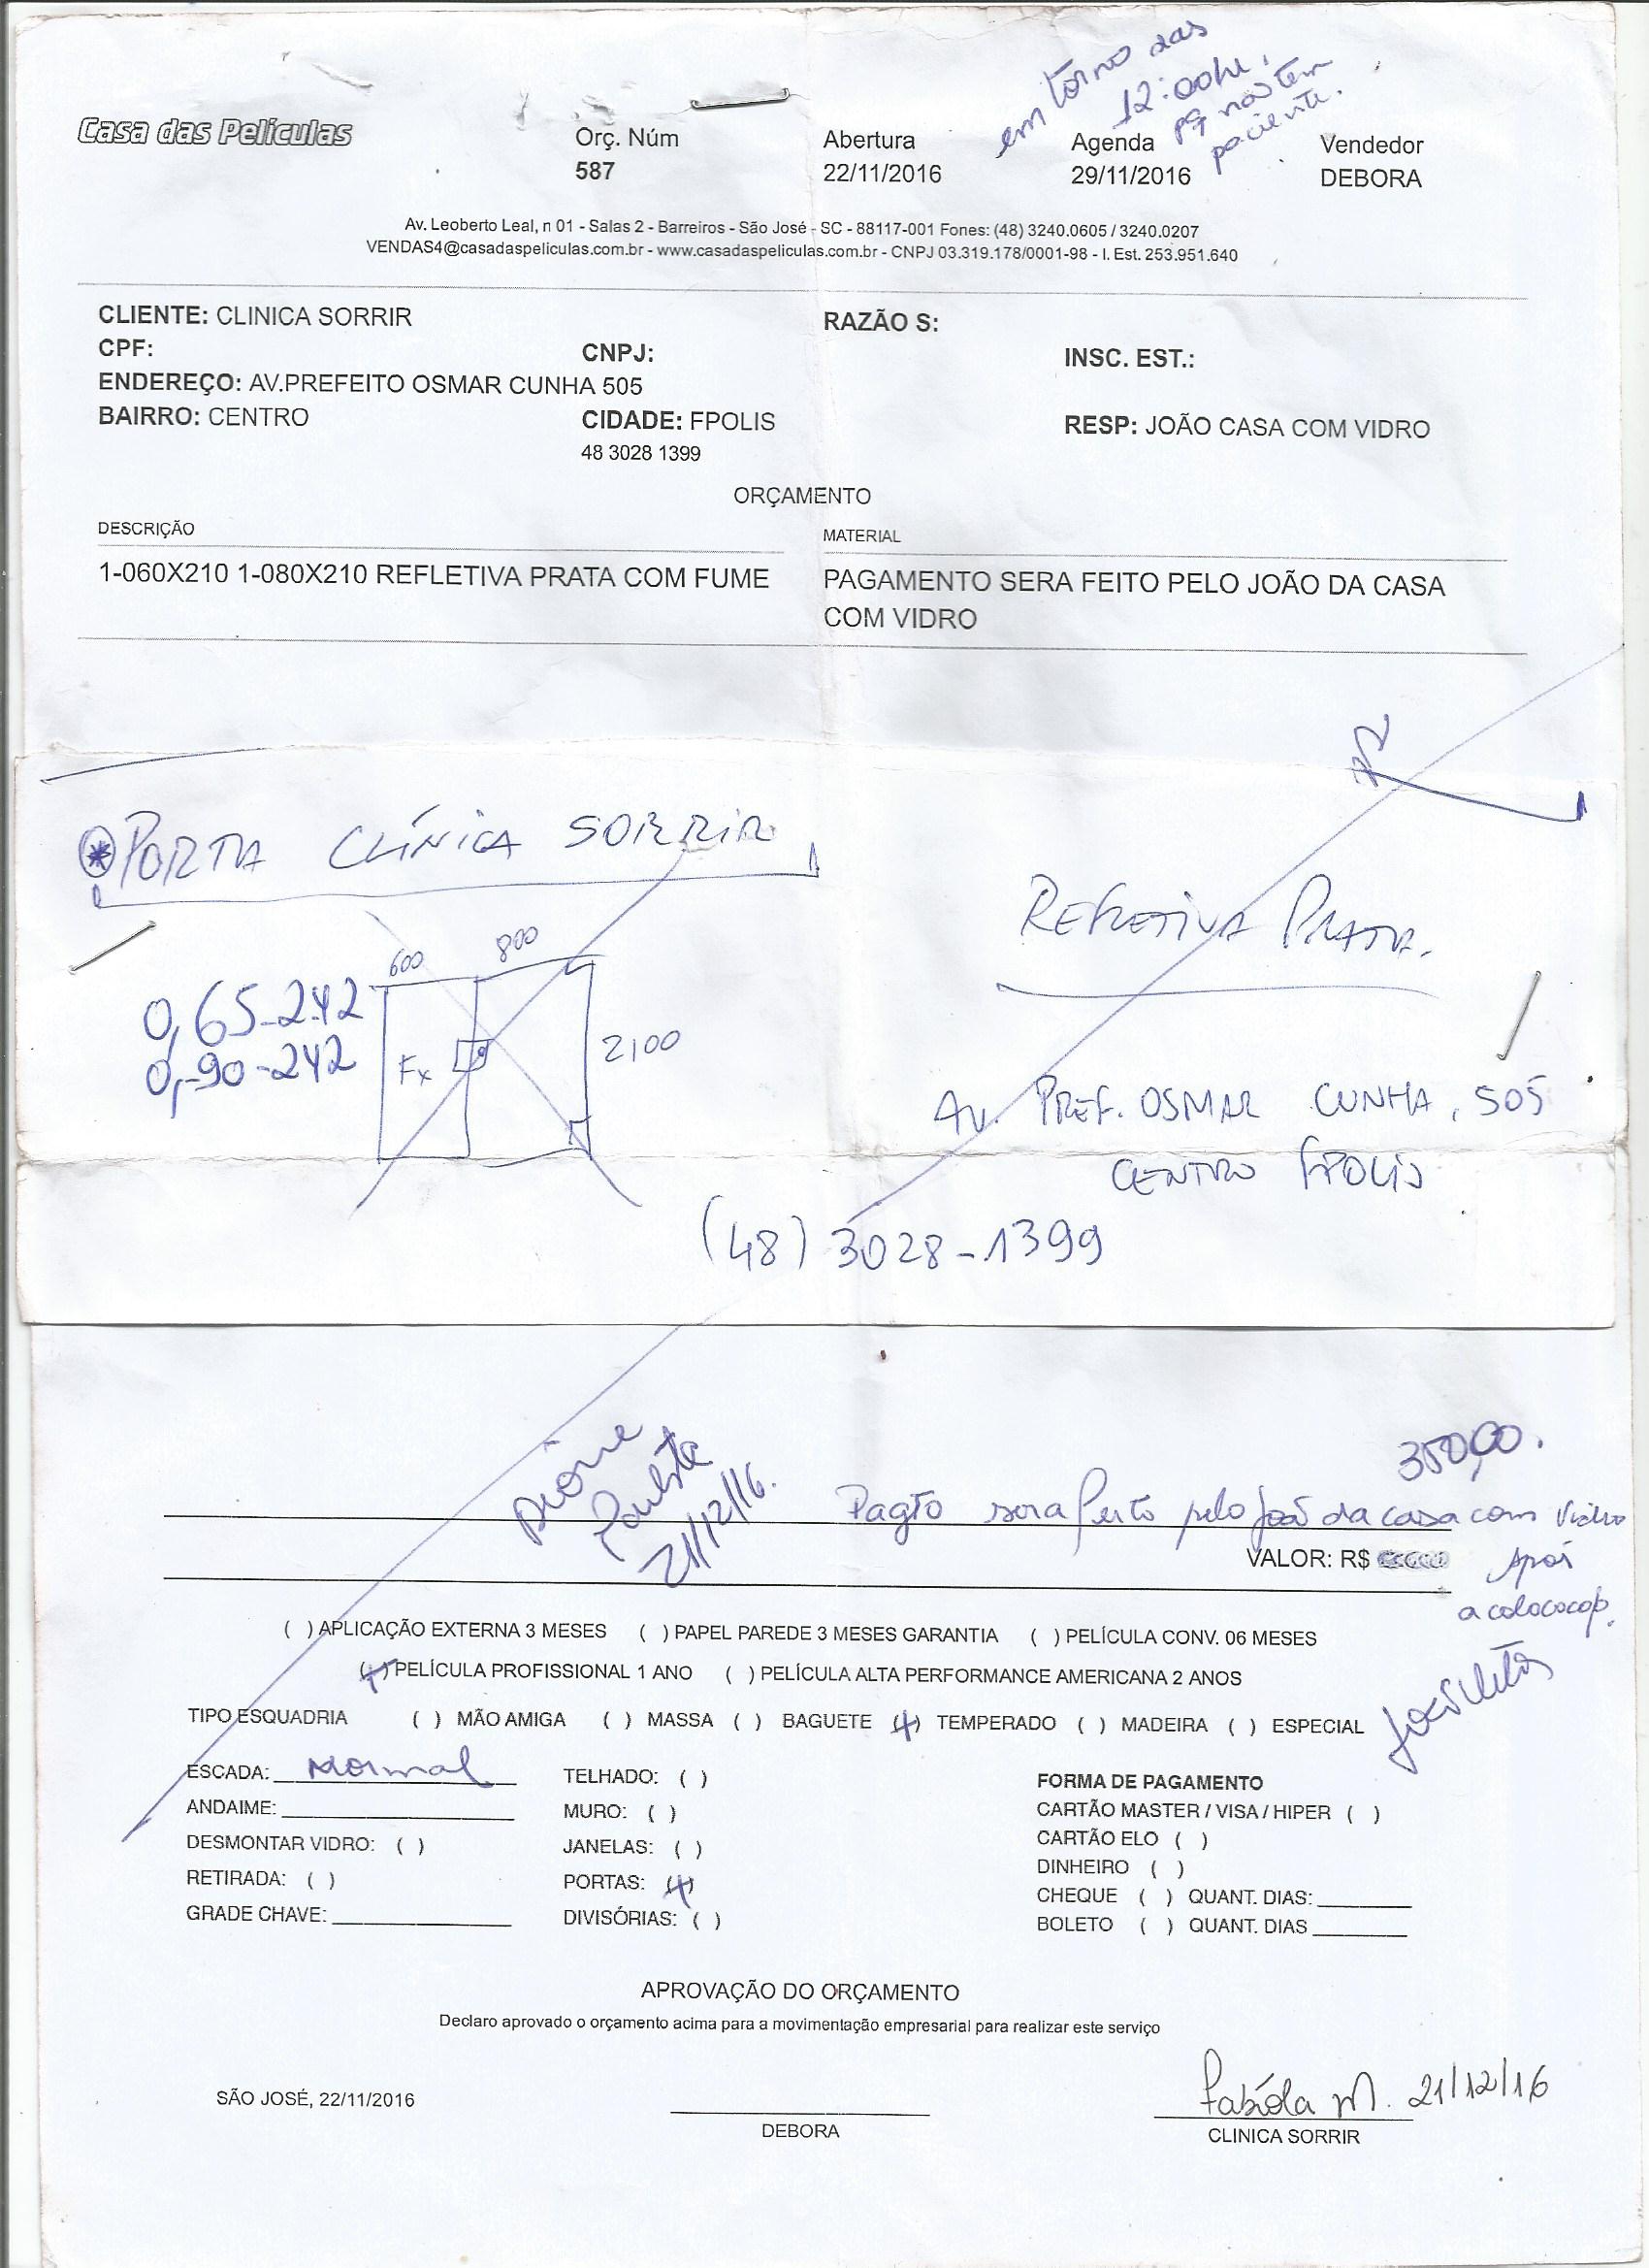 em torno das
12:00hr,
pq não tem
paciente.
Casa das Películas
Orç. Núm
587
Abertura
22/11/2016
Agenda
29/11/2016
Vendedor
DEBORA
Av. Leoberto Leal, n 01 - Salas 2 - Barreiros - São José - SC - 88117-001 Fones: (48) 3240.0605 / 3240.0207
VENDAS4@casadaspeliculas.com.br - www.casadaspeliculas.com.br - CNPJ 03.319.178/0001-98 - I. Est. 253.951.640
CLIENTE: CLINICA SORRIR
RAZÃO S:
CPF:
CNPJ:
INSC. EST.:
ENDEREÇO: AV.PREFEITO OSMAR CUNHA 505
BAIRRO: CENTRO
CIDADE: FPOLIS
RESP: JOÃO CASA COM VIDRO
48 3028 1399
ORÇAMENTO
DESCRIÇÃO
MATERIAL
1-060X210 1-080X210 REFLETIVA PRATA COM FUME
PAGAMENTO SERA FEITO PELO JOÃO DA CASA
COM VIDRO
PORTA CLÍNICA SORRIR
REFLETIVA PRATA.
600 800
0,65-242
0,90-242
Fx
2100
AV. PREF. OSMAR CUNHA, 505
CENTRO FPOLIS
(48) 3028-1399
350,00.
21/12/16.
Pagto sera feito pelo João da casa com Vidro
VALOR: R$
Após
a colocação.
( ) APLICAÇÃO EXTERNA 3 MESES ( ) PAPEL PAREDE 3 MESES GARANTIA ( ) PELÍCULA CONV. 06 MESES
(x) PELÍCULA PROFISSIONAL 1 ANO ( ) PELÍCULA ALTA PERFORMANCE AMERICANA 2 ANOS
TIPO ESQUADRIA ( ) MÃO AMIGA ( ) MASSA ( ) BAGUETE (x) TEMPERADO ( ) MADEIRA ( ) ESPECIAL
ESCADA: Normal
ANDAIME:
DESMONTAR VIDRO: ( )
RETIRADA: ( )
GRADE CHAVE:
TELHADO: ( )
MURO: ( )
JANELAS: ( )
PORTAS: (x)
DIVISÓRIAS: ( )
FORMA DE PAGAMENTO
CARTÃO MASTER / VISA / HIPER ( )
CARTÃO ELO ( )
DINHEIRO ( )
CHEQUE ( ) QUANT. DIAS:
BOLETO ( ) QUANT. DIAS
APROVAÇÃO DO ORÇAMENTO
Declaro aprovado o orçamento acima para a movimentação empresarial para realizar este serviço
SÃO JOSÉ, 22/11/2016
DEBORA
Fabíola M. 21/12/16
CLINICA SORRIR